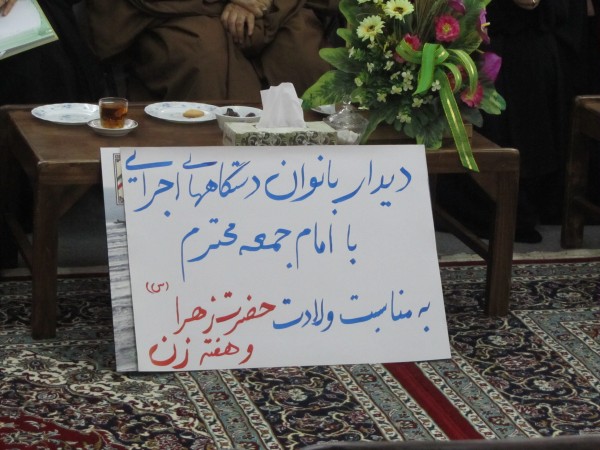 دیدار بانوان دستگاههای اجرایی
با امام جمعه محترم
به مناسبت ولادت حضرت زهرا (س)
و هفته زن